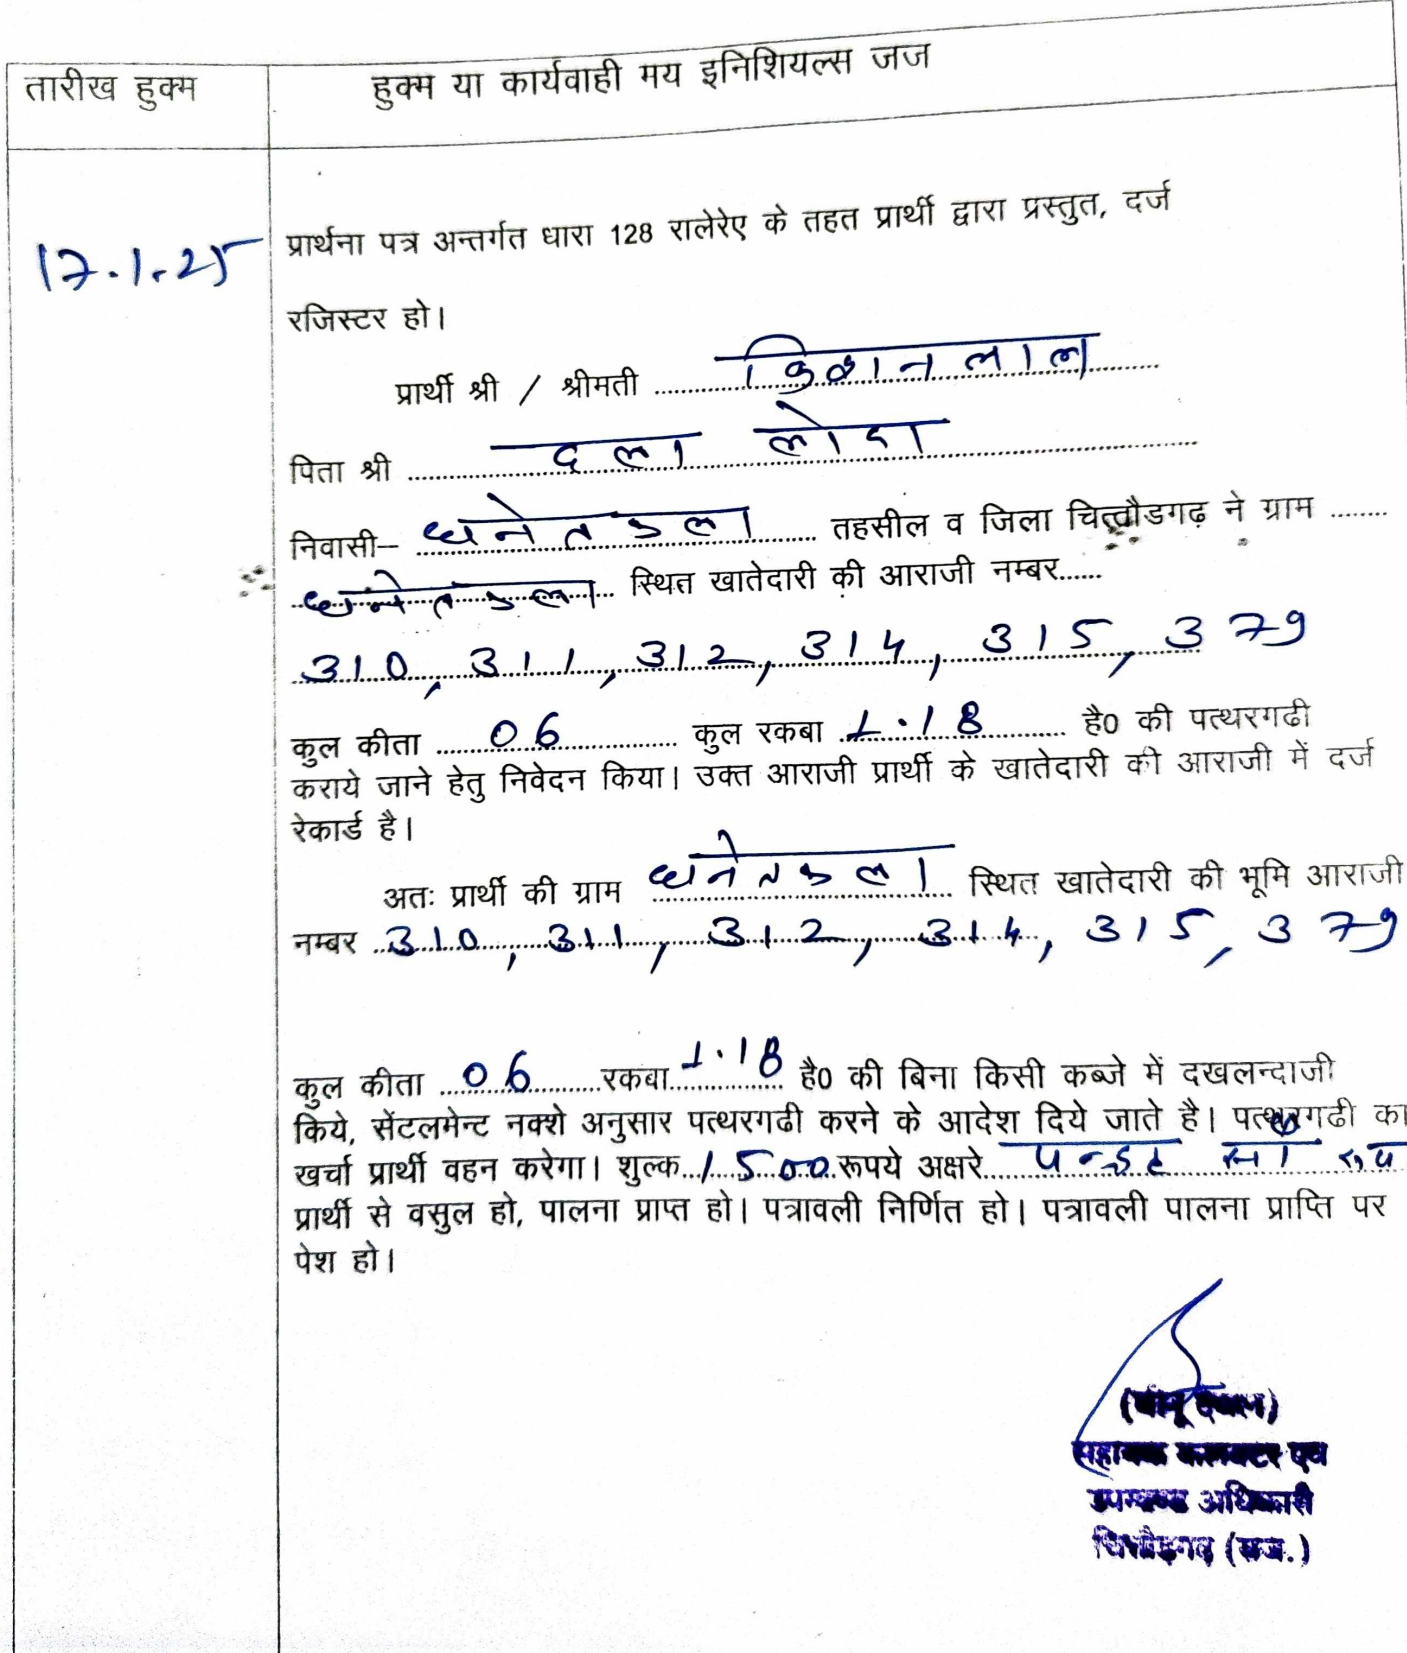 तारीख हुक्म
हुक्म या कार्यवाही मय इनिशियल्स जज
17.1.25
प्रार्थना पत्र अन्तर्गत धारा 128 रालेरेए के तहत प्रार्थी द्वारा प्रस्तुत, दर्ज
रजिस्टर हो।
प्रार्थी श्री / श्रीमती ............ किशनलाल ............
पिता श्री ............ दला लोदा ............
निवासी– ............ धनेतकला ............ तहसील व जिला चित्तौडगढ़ ने ग्राम ........
............ धनेतकला ............ स्थित खातेदारी की आराजी नम्बर......
310, 311, 312, 314, 315, 379
कुल कीता ............ 06 ............ कुल रकबा ............ 1.18 ............ है0 की पत्थरगढी
कराये जाने हेतु निवेदन किया। उक्त आराजी प्रार्थी के खातेदारी की आराजी में दर्ज
रेकार्ड है।
अतः प्रार्थी की ग्राम ............ धनेतकला ............ स्थित खातेदारी की भूमि आराजी
नम्बर ...310, 311, 312, 314, 315, 379
कुल कीता ......06......रकबा......1.18...... है0 की बिना किसी कब्जे में दखलन्दाजी
किये, सेंटलमेन्ट नक्शे अनुसार पत्थरगढी करने के आदेश दिये जाते है। पत्थरगढी का
खर्चा प्रार्थी वहन करेगा। शुल्क...1500...रूपये अक्षरे......पन्द्रह सौ
प्रार्थी से वसुल हो, पालना प्राप्त हो। पत्रावली निर्णित हो। पत्रावली पालना प्राप्ति पर
पेश हो।
सहायक कलक्टर एवं
उपखण्ड अधिकारी
चित्तौड़गढ़ (राज.)